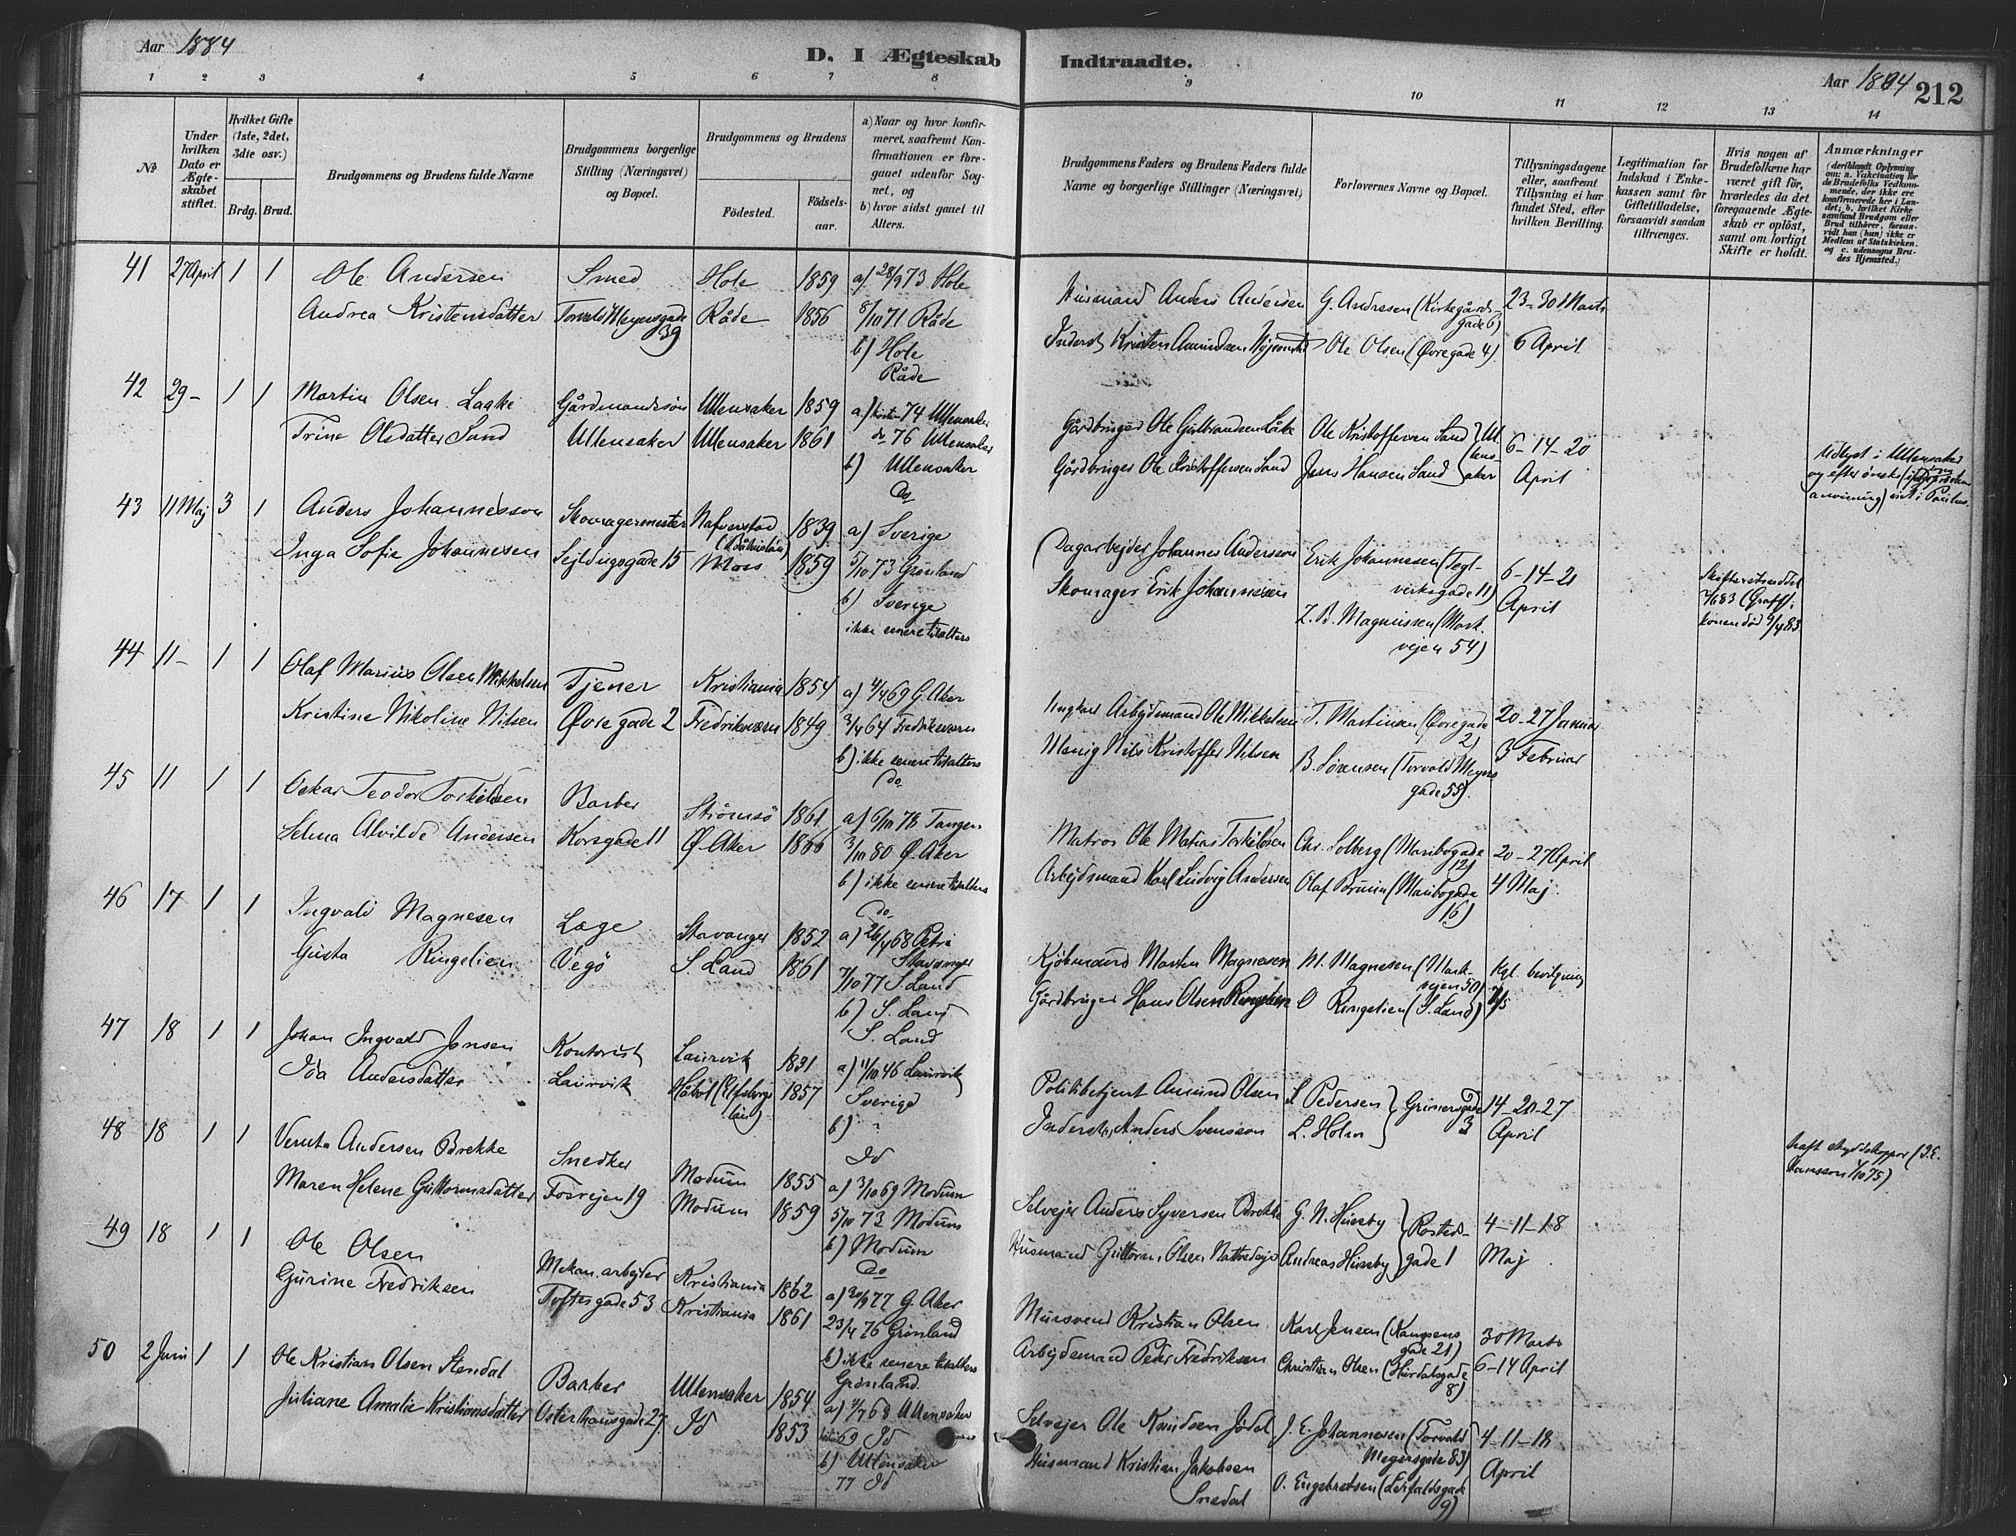 Aar 1884
D. I Ægteskab Indtraadte.
Aar 1884
212
1 2 3 4 5 6 7 8 9 10 11 12 13 14
No
Under hvilken Dato er Ægteskabet stiftet.
Hvilket Gifte (1ste, 2det, 3die osv.)
Brdg. Brud.
Brudgommens og Brudens fulde Navne
Brudgommens borgerlige Stilling (Næringsvei) og Bopæl.
Brudgommens og Brudens
Födested.
Födselsaar.
a) Naar og hvor konfirmeret, saafremt Konfirmationen er foregaaet udenfor Sognet, og
b) hvor sidst gaaet til Alters.
Brudgommens Faders og Brudens Faders fulde Navne og borgerlige Stillinger (Næringsvei)
Forlovernes Navne og Bopæl.
Tillysningsdagene eller, saafremt Tillysning ei har fundet Sted, efter hvilken Bevilling.
Legitimation for Indskud i Enkekassen samt for Giftetilladelse, forsaavidt saadan tiltrænges.
Hvis nogen af Brudefolkene har været gift för, hvorledes da det foregaaende Ægteskab er oplöst, samt om lovligt Skifte er holdt.
Anmærkninger
(deriblandt Oplysning om: a. Vakcination for de Brudefolks Vedkommende, der ikke ere konfirmerede her i Landet; b. hvilket Kirkesamfund Brudgom eller Brud tilhører, forsaavidt han (hun) ikke er Medlem af Statskirken. og c. udensogns Brudes Hjemsted.)
41 27 April 1 1 Ole Andersen Smed Hole 1859 a) 28/9 73 Hole
Andrea Kristensdatter Torvald Meyersgade 39 Råde 1856 8/10 71 Råde
b) Hole
Råde
Husmand Anders Andersen G. Andresen (Kirkegårdsgade 6) 23-30 Marts
Inderst Kristen Amundsen Ole Olsen (Øvregade 4) 6 April
42 29- 1 1 Martin Olsen Laake Gårdmandssøn Ullensaker 1859 a) høsten 74 Ullensaker
Trine Olsdatter Sand Ullensaker Ullensaker 1861 do 76 Ullensaker
b) Ullensaker
Do
Gårdbruger Ole Gulbrandsen Låke Ole Kristoffersen Sand } Ullensaker 6-14-20
Gårdbruger Ole Kristoffersen Sand Jens Hansen Sand April
Udlyst i Ullensaker og efter ønske
43 11 Maj 3 1 Anders Johannesson Skomagermester Nafverstad 1839 a) Sverige
Inga Sofie Johannesen Sejldugsgade 15 Moss 1859 5/10 73 Grønland
b) Sverige
ikke senere til alters
Dagarbejder Johannes Andersson Erik Johannesen (Teglverksgade 11) 6-14-21
Skomager Erik Johannesen Z. B. Magnussen (Markvejen 54) April
44 11- 1 1 Olaf Marius Olsen Mikkelsen Tjener Kristiania 1854 a) 4/4 69 G. Aker
Kristine Nikoline Nilsen Øvre gade 2 Fredriksværn 1849 3/4 64 Fredriksværn
b) ikke senere til alters
do
Ungkarl Arbejdsmand Ole Mikkelsen T. Martinsen (Øvregade 2) 20-27 Januar
Nils Kristoffer Nilsen B. Sørensen (Torvald Meyers gade 55) 3 Februar
45 11 1 1 Oskar Teodor Torkildsen Barber Strømsø 1861 a) 6/10 78 Tangen
Selma Alvilde Andersen Korsgade 11 Ø. Aker 1866 3/10 80 Ø. Aker
b) ikke senere til alters
do
Matros Ole Matias Torkildsen Chr. Solberg (Maribogade 12) 20-27 April
Arbejdsmand Karl Ludvig Andersen Olaf Bruun (Maribogade 16) 4 Maj
46 17 1 1 Ingvald Magnesen Læge Stavanger 1852 a) 26/4 68 Petri Stavanger
Gusta Ringelien Vegø S. Land 1861 7/10 77 S. Land
b) S. Land
S. Land
Kjøbmand Morten Magnesen M. Magnesen (Markvejen 50) Kgl. bevilgning
Gårdbruger Hans Olsen Ringelien O Ringelien (S. Land)
47 18 1 1 Johan Ingvald Jensen Kontorist Laurvik 1831 a) 11/10 46 Laurvik
Ida Andersdatter Laurvik Håbøl (Elfsborgs län) 1857 Sverige
b)
Politibetjent Amund Olsen L Pedersen } Grünersgade 3 14-20-27
Inderst Anders Svensson L. Holm April
48 18 1 1 Veruta Andersen Brekke Snedker Modum 1855 a) 3/10 69 Modum
Maren Helene Guttormsdatter Fosvejen 19 Modum 1859 5/10 73 Modum
b) Modum
Do
Selvejer Anders Syversen Brekke G. N. Huseby } Rostedsgade 1 4-11-18
Husmand Guttorm Olsen Andreas Huseby Maj
49 18 1 1 Ole Olsen Mekan. arbejder Kristiania 1862 a) 30/9 77 G. Aker
Gurine Fredriksen Toftesgade 53 Kristiania 1861 23/4 76 Grønland
b) ikke senere til alters
Grønland
Mursvend Kristian Olsen Karl Jensen (Kampens gade 21) 30 Marts
Arbejdsmand Peder Fredriksen Christian Olsen (Hurdalsgade 8) 6-14 April
50 2 Juni 1 1 Ole Kristian Olsen Stendal Barber Ullensaker 1854 a) 68 Ullensaker
Juliane Amalie Kristiansdatter Osterhausgade 27 Id 1853 69 Id
b) Ullensaker
77 Id
Selvejer Ole Knudsen J. E. Johannesen (Torvald Meyersgade 83) 4-11-18
Husmand Kristian Jakobsen Snedal O. Engebretsen (Leirfaldsgade 9) April